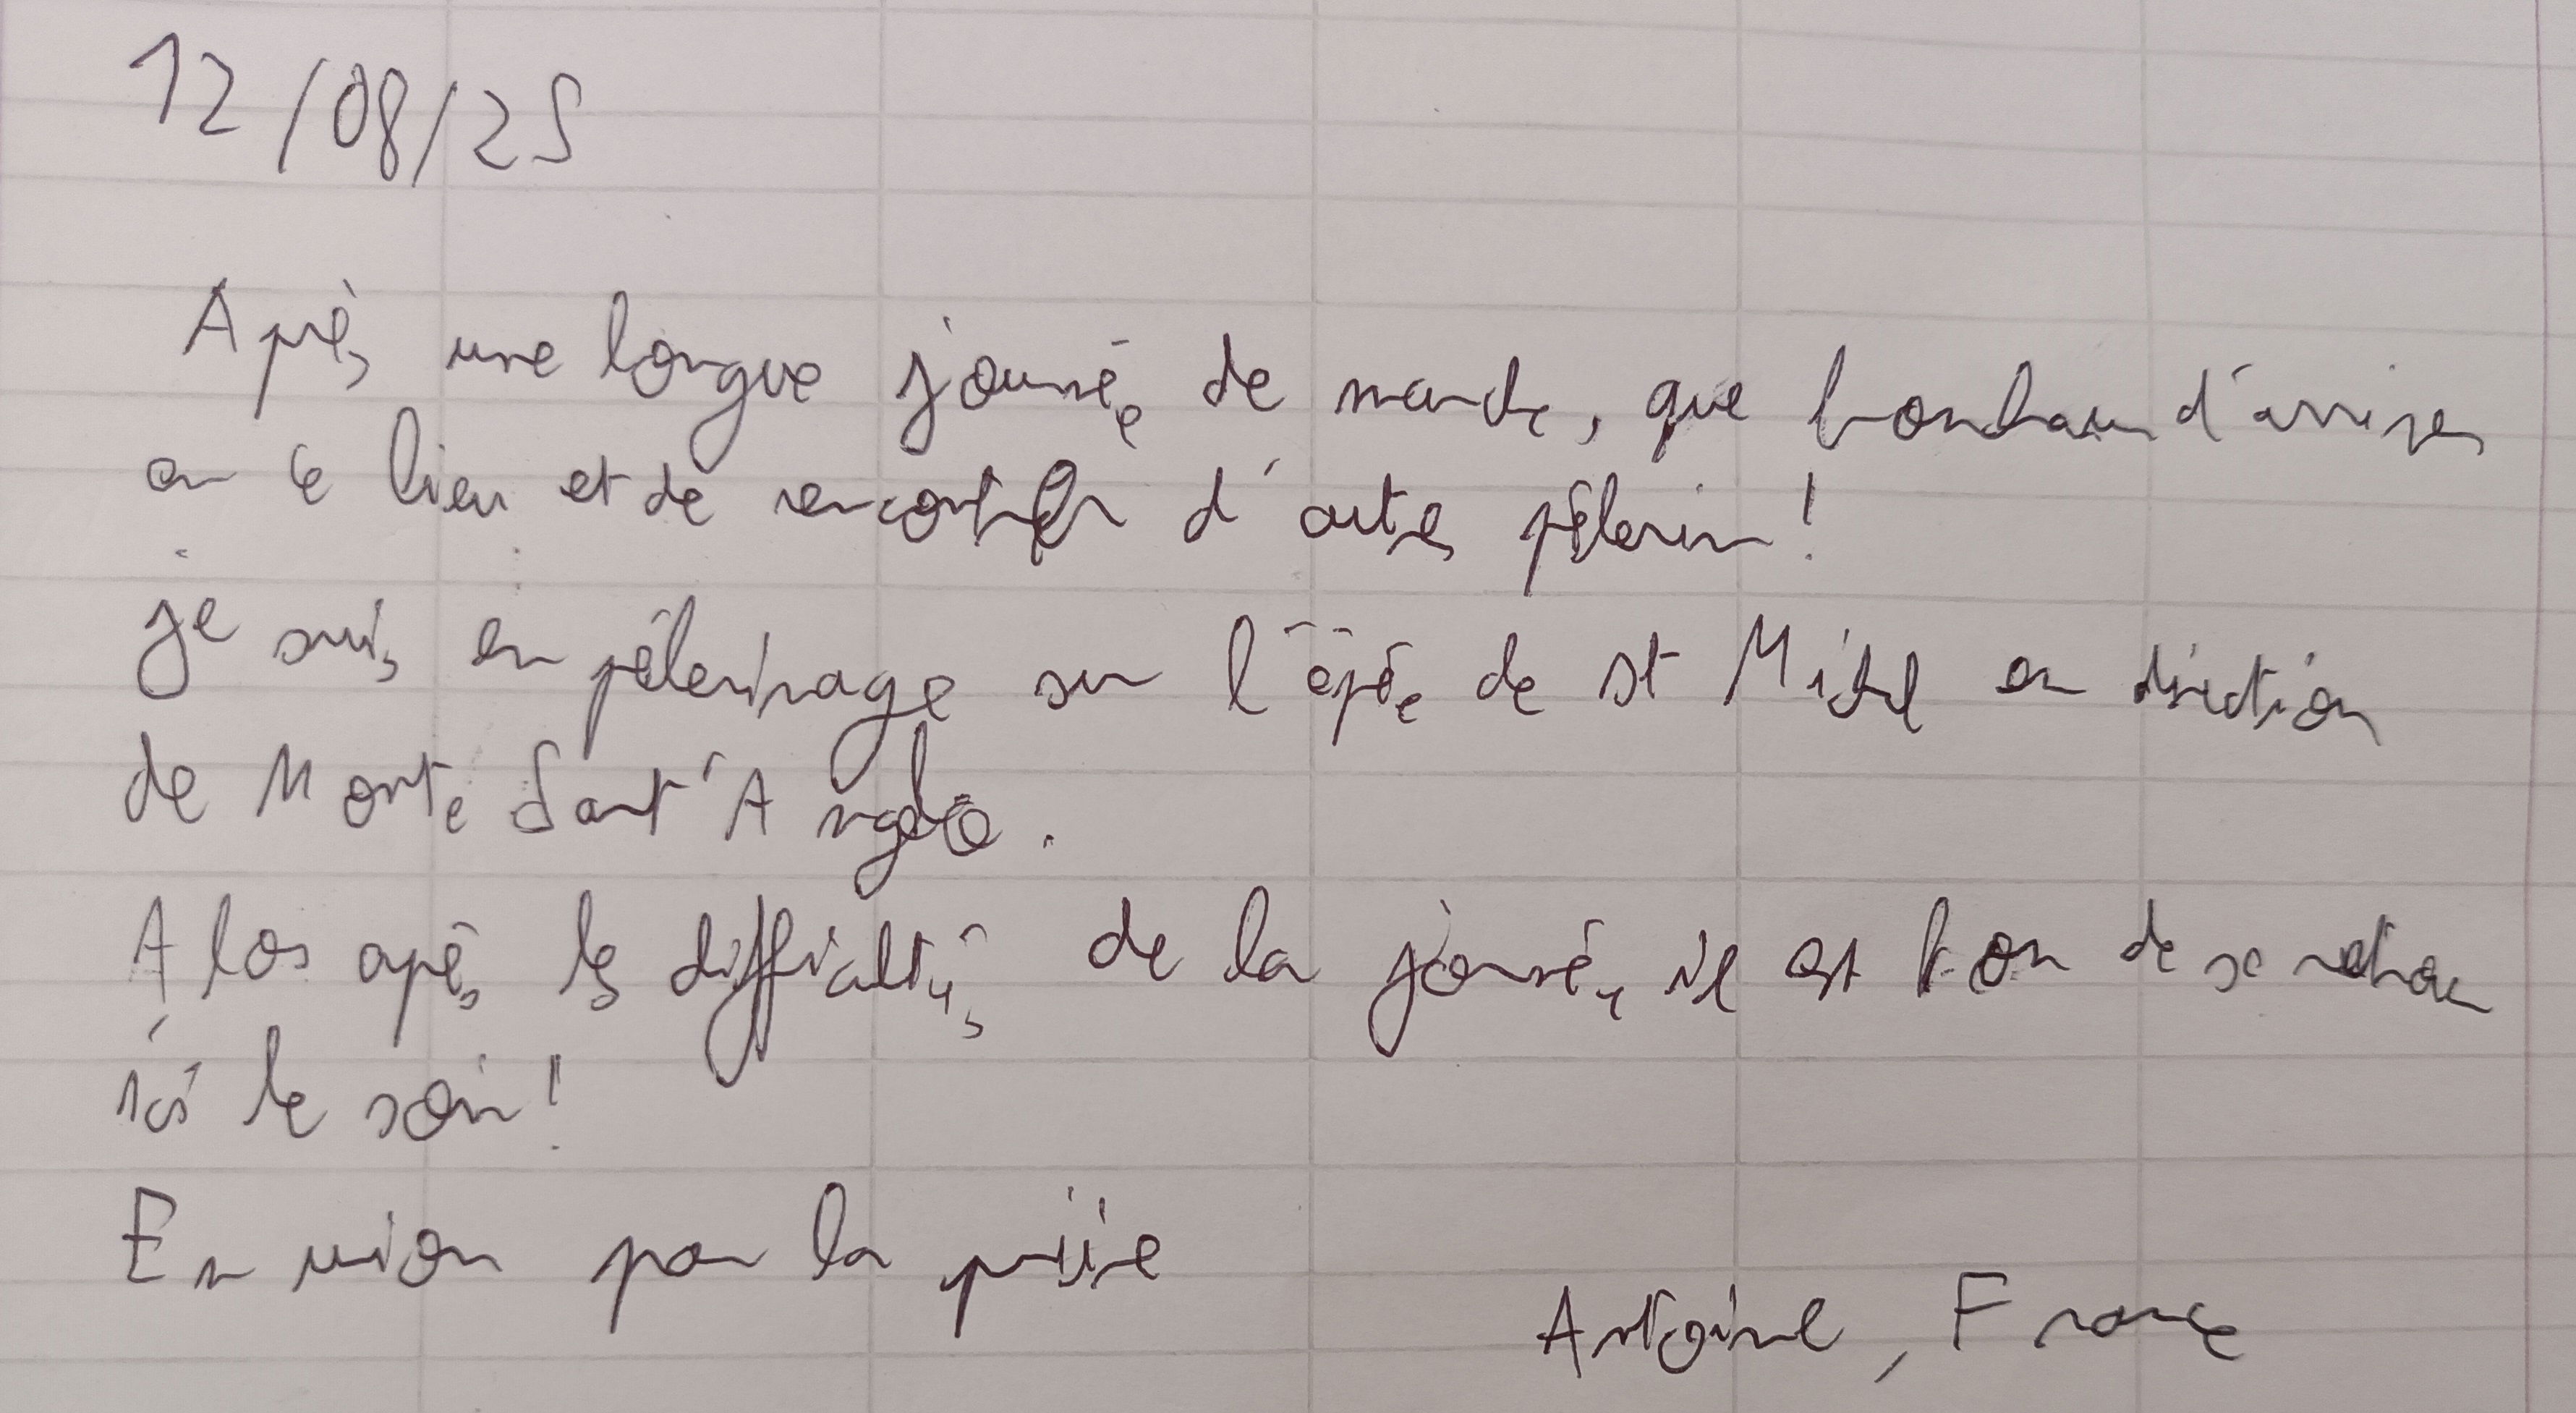 12/08/25
Après une longue journée de marche, que bonheur d'arriver
en ce lieu et de rencontrer d'autres pèlerin!
je suis en pèlerinage sur l'épée de st Michel en direction
de Monte Sant'Angelo.
Alors après les difficultés de la journée, il est bon de se retrouver
ici le soir!
En union par la prière
Antoine, France